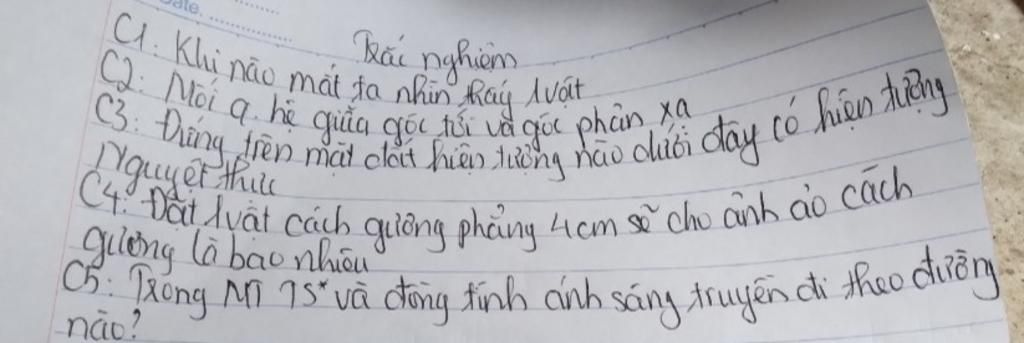 Date.
Trắc nghiệm
C1. Khi nào mắt ta nhìn thấy 1 vật
C2: Mối q. hệ giữa góc tới và góc phản xạ
C3: Đứng trên mặt đất hiện tượng nào dưới đây có hiện tượng
Nguyệt thực
C4: Đặt 1 vật cách gương phẳng 4cm sẽ cho ảnh ảo cách
gương là bao nhiêu
C5: Trong MT TS* và đồng tính ánh sáng truyền đi theo đường
nào?